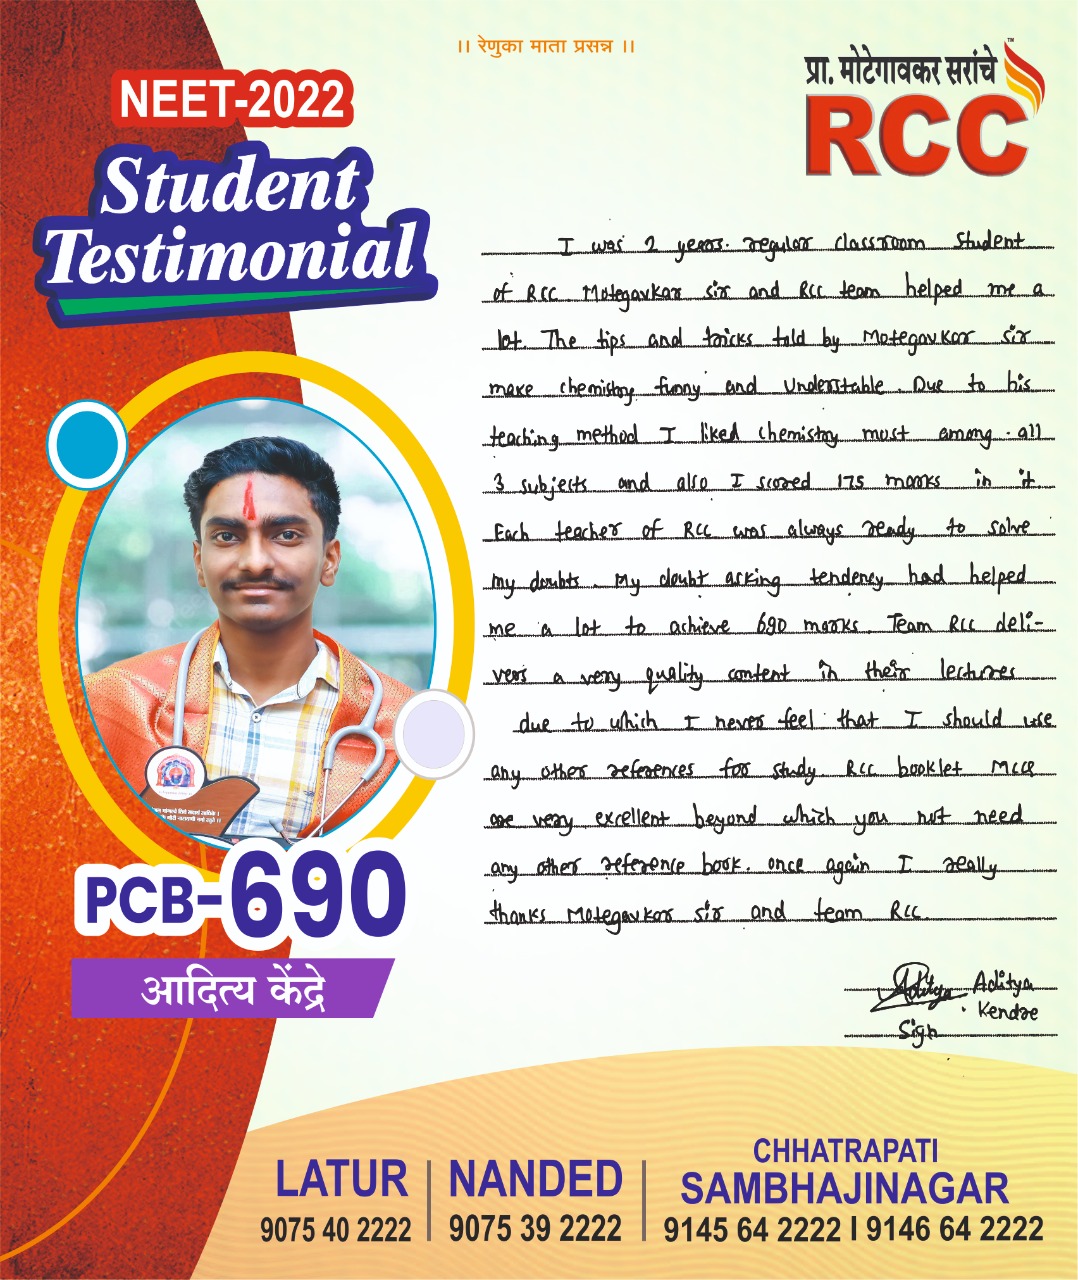 ।। रेणुका माता प्रसन्न ।।
NEET-2022
Student
Testimonial
प्रा. मोटेगावकर सरांचे
RCC
TM
I was 2 years. regular classroom student
of RCC Motegavkar sir and RCC team helped me a
lot. The tips and tricks told by Motegavkar sir
make chemistry funny and understable. Due to his
teaching method I liked chemistry most among all
3 subjects and also I scored 175 marks in it.
Each teacher of RCC was always ready to solve
my doubts. My doubt asking tendency had helped
me a lot to achieve 690 marks. Team RCC deli-
vers a very quality content in their lectures
due to which I never feel that I should use
any other references for study RCC booklet MCQ
are very excellent beyond which you not need
any other reference book. once again I really
thanks Motegavkar sir and team RCC.
Aditya
Kendre
Sign
PCB-690
आदित्य केंद्रे
LATUR
9075 40 2222
NANDED
9075 39 2222
CHHATRAPATI
SAMBHAJINAGAR
9145 64 2222 I 9146 64 2222